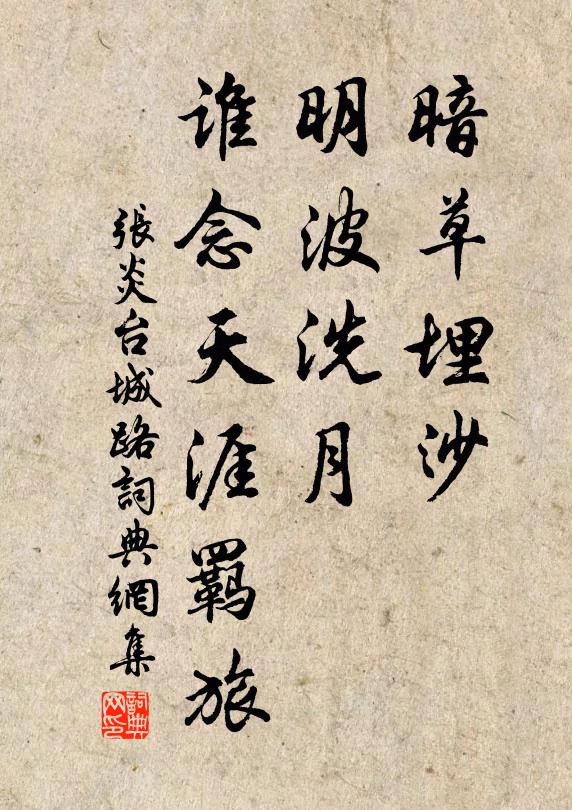 暗草埋沙
明波洗月
谁念天涯羁旅
張炎台城路詞典網集
詞典网印